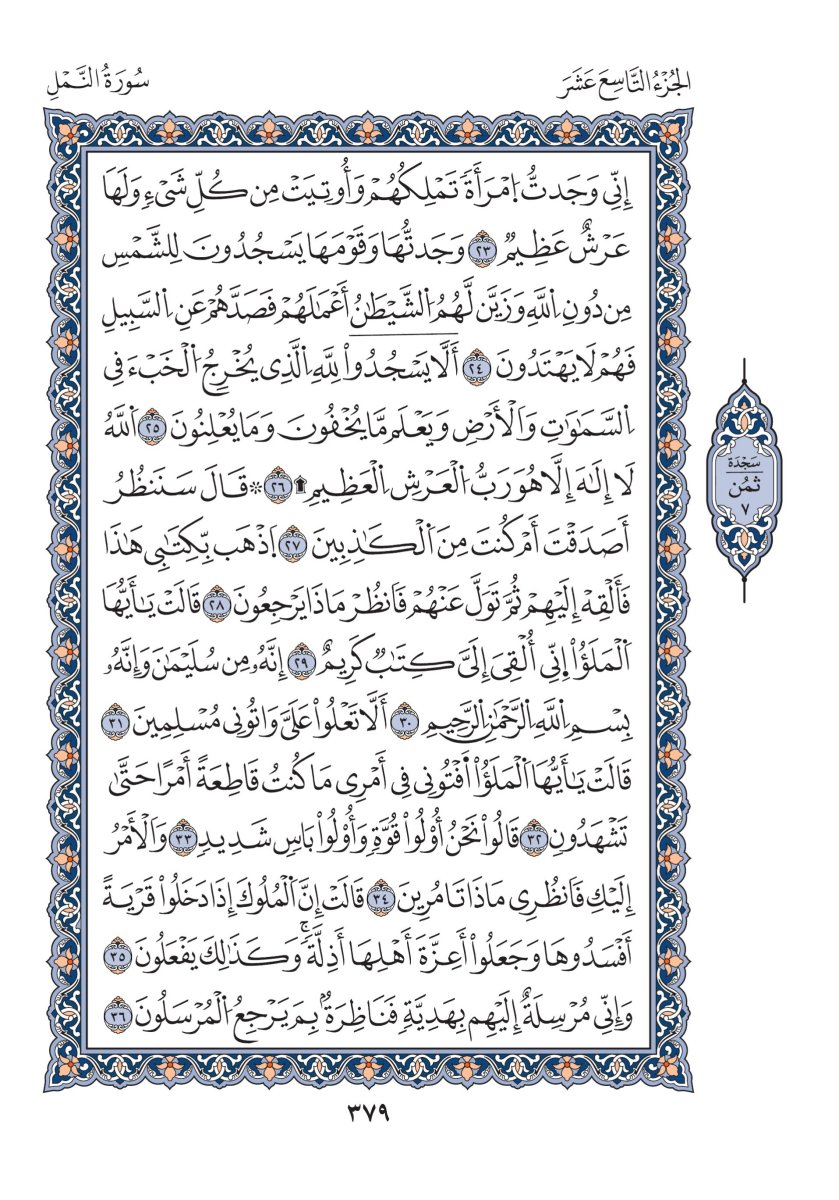 الجُزْءُ التَّاسِعَ عَشَرَ
سُورَةُ النَّمْلِ
إِنِّي وَجَدتُّ اُمْرَأَةٗ تَمْلِكُهُمْ وَأُوتِيَتْ مِن كُلِّ شَيْءٖ وَلَهَا
عَرْشٌ عَظِيمٞ ٢٣ وَجَدتُّهَا وَقَوْمَهَا يَسْجُدُونَ لِلشَّمْسِ
مِن دُونِ اِللَّهِ وَزَيَّن لَّهُمُ اُلشَّيْطَٰنُ أَعْمَٰلَهُمْ فَصَدَّهُمْ عَنِ اِلسَّبِيلِ
فَهُمْ لَا يَهْتَدُونَ ٢٤ أَلَّا يَسْجُدُواْ لِلَّهِ اِلَّذِي يُخْرِجُ اُلْخَبْءَ فِي
اِلسَّمَٰوَٰتِ وَالْأَرْضِ وَيَعْلَم مَّا يُخْفُونَ وَمَا يُعْلِنُونَ ٢٥ اَللَّهُ
لَا إِلَٰهَ إِلَّا هُوَ رَبُّ اُلْعَرْشِ اِلْعَظِيمِ ۩ ٢٦ ۞ قَالَ سَنَنظُرُ
أَصَدَقْتَ أَمْ كُنتَ مِنَ اَلْكَٰذِبِينَ ٢٧ اِذْهَب بِّكِتَٰبِي هَٰذَا
فَأَلْقِهْ إِلَيْهِمْ ثُمَّ تَوَلَّ عَنْهُمْ فَانظُرْ مَاذَا يَرْجِعُونَ ٢٨ قَالَتْ يَٰأَيُّهَا
اَلْمَلَؤُاْ إِنِّي أُلْقِيَ إِلَيَّ كِتَٰبٞ كَرِيمٌ ٢٩ إِنَّهُۥ مِن سُلَيْمَٰنَ وَإِنَّهُۥ
بِسْمِ اِللَّهِ اِلرَّحْمَٰنِ اِلرَّحِيمِ ٣٠ أَلَّا تَعْلُواْ عَلَيَّ وَاتُونِي مُسْلِمِينَ ٣١
قَالَتْ يَٰأَيُّهَا اَلْمَلَؤُاْ أَفْتُونِي فِي أَمْرِي مَا كُنتُ قَاطِعَةً أَمْرًا حَتَّىٰ
تَشْهَدُونِ ٣٢ قَالُواْ نَحْنُ أُوْلُواْ قُوَّةٖ وَأُوْلُواْ بَاسٖ شَدِيدٖ ٣٣ وَالْأَمْرُ
إِلَيْكِ فَانظُرِي مَاذَا تَامُرِينَ ٣٤ قَالَتْ إِنَّ اَلْمُلُوكَ إِذَا دَخَلُواْ قَرْيَةً
أَفْسَدُوهَا وَجَعَلُواْ أَعِزَّةَ أَهْلِهَا أَذِلَّةٗۚ وَكَذَٰلِكَ يَفْعَلُونَ ٣٥
وَإِنِّي مُرْسِلَةٌ إِلَيْهِم بِهَدِيَّةٖ فَنَاظِرَةُۢ بِمَ يَرْجِعُ اُلْمُرْسَلُونَ ٣٦
سَجْدَة
ثُمُن
٧
٣٧٩